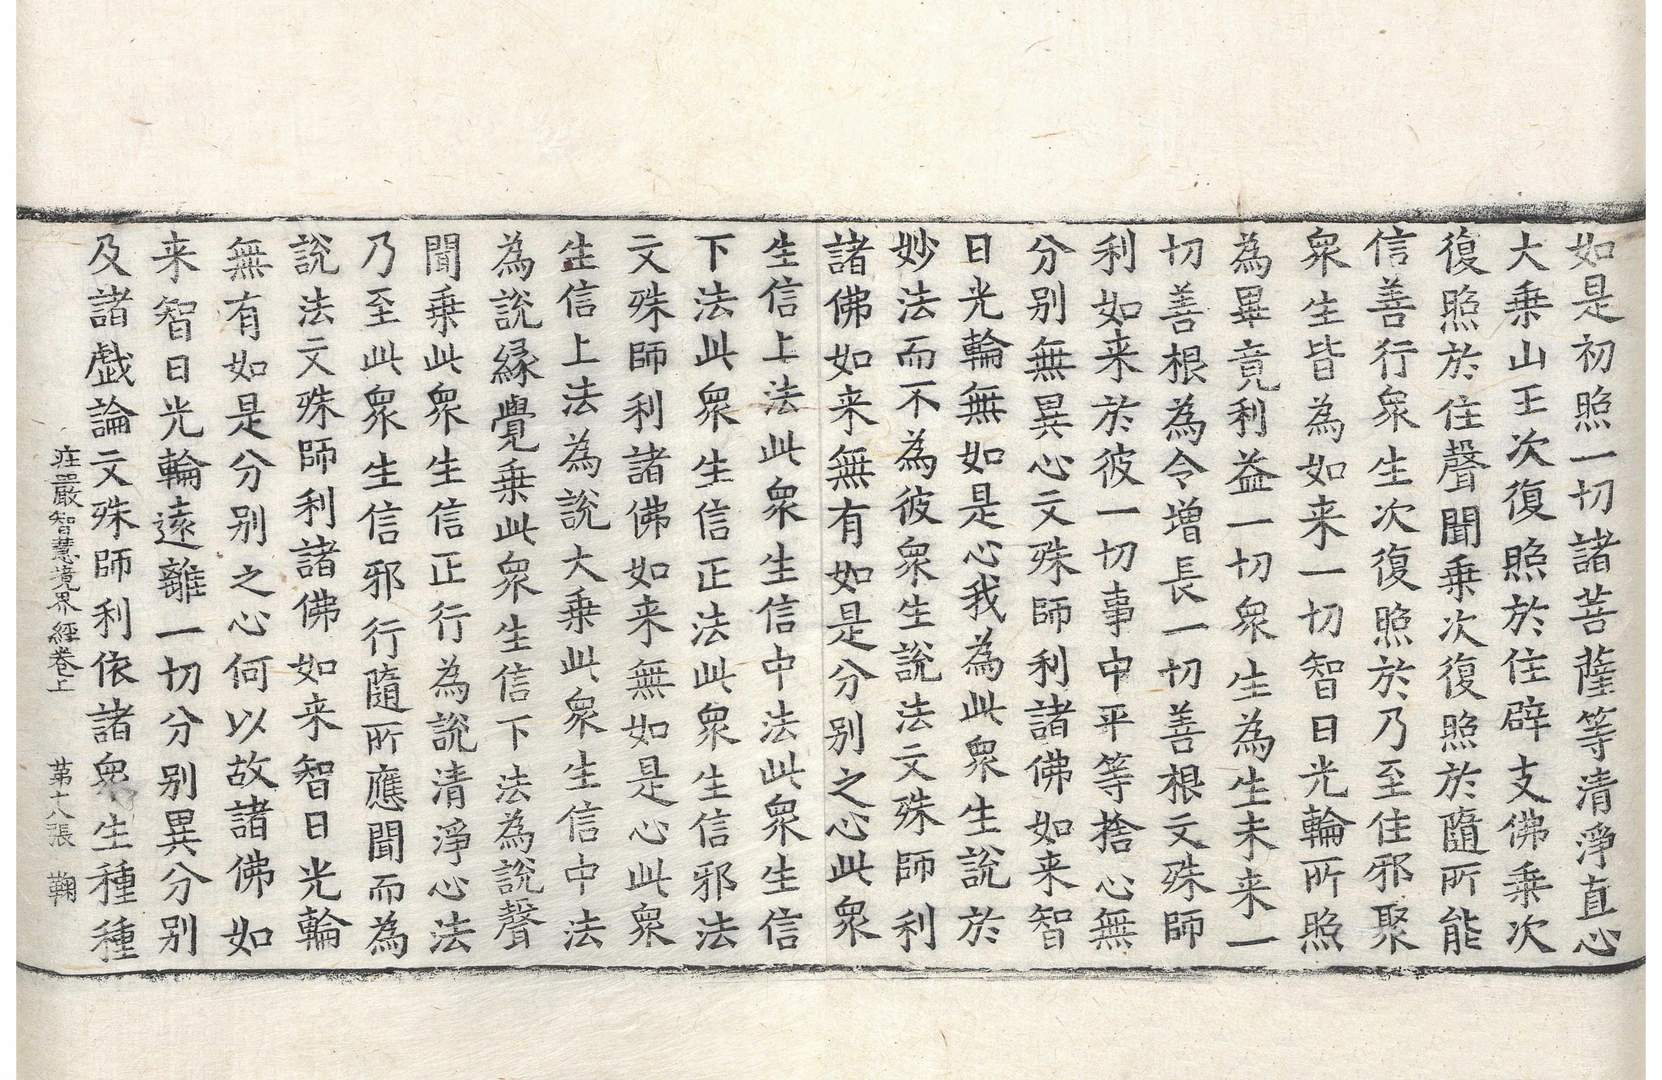 如是初照一切諸菩薩等清淨直心
大乗山王次復照於住辟支佛乗次
復照於住聲聞乗次復照於隨所能
信善行衆生次復照於乃至住邪聚
衆生皆為如来一切智日光輪所照
為畢竟利益一切衆生為生未来一
切善根為令增長一切善根文殊師
利如来於彼一切事中平等捨心無
分别無異心文殊師利諸佛如来智
日光輪無如是心我為此衆生說於
妙法而不為彼衆生說法文殊師利
諸佛如来無有如是分别之心此衆
生信上法此衆生信中法此衆生信
下法此衆生信正法此衆生信邪法
文殊師利諸佛如来無如是心此衆
生信上法為說大乗此衆生信中法
為說縁覺乗此衆生信下法為說聲
聞乗此衆生信正行為說清淨心法
乃至此衆生信邪行隨所應聞而為
說法文殊師利諸佛如来智日光輪
無有如是分别之心何以故諸佛如
来智日光輪遠離一切分别異分别
及諸戯論文殊師利依諸衆生種種
庄嚴智慧境界經卷上 苐十八張 鞠